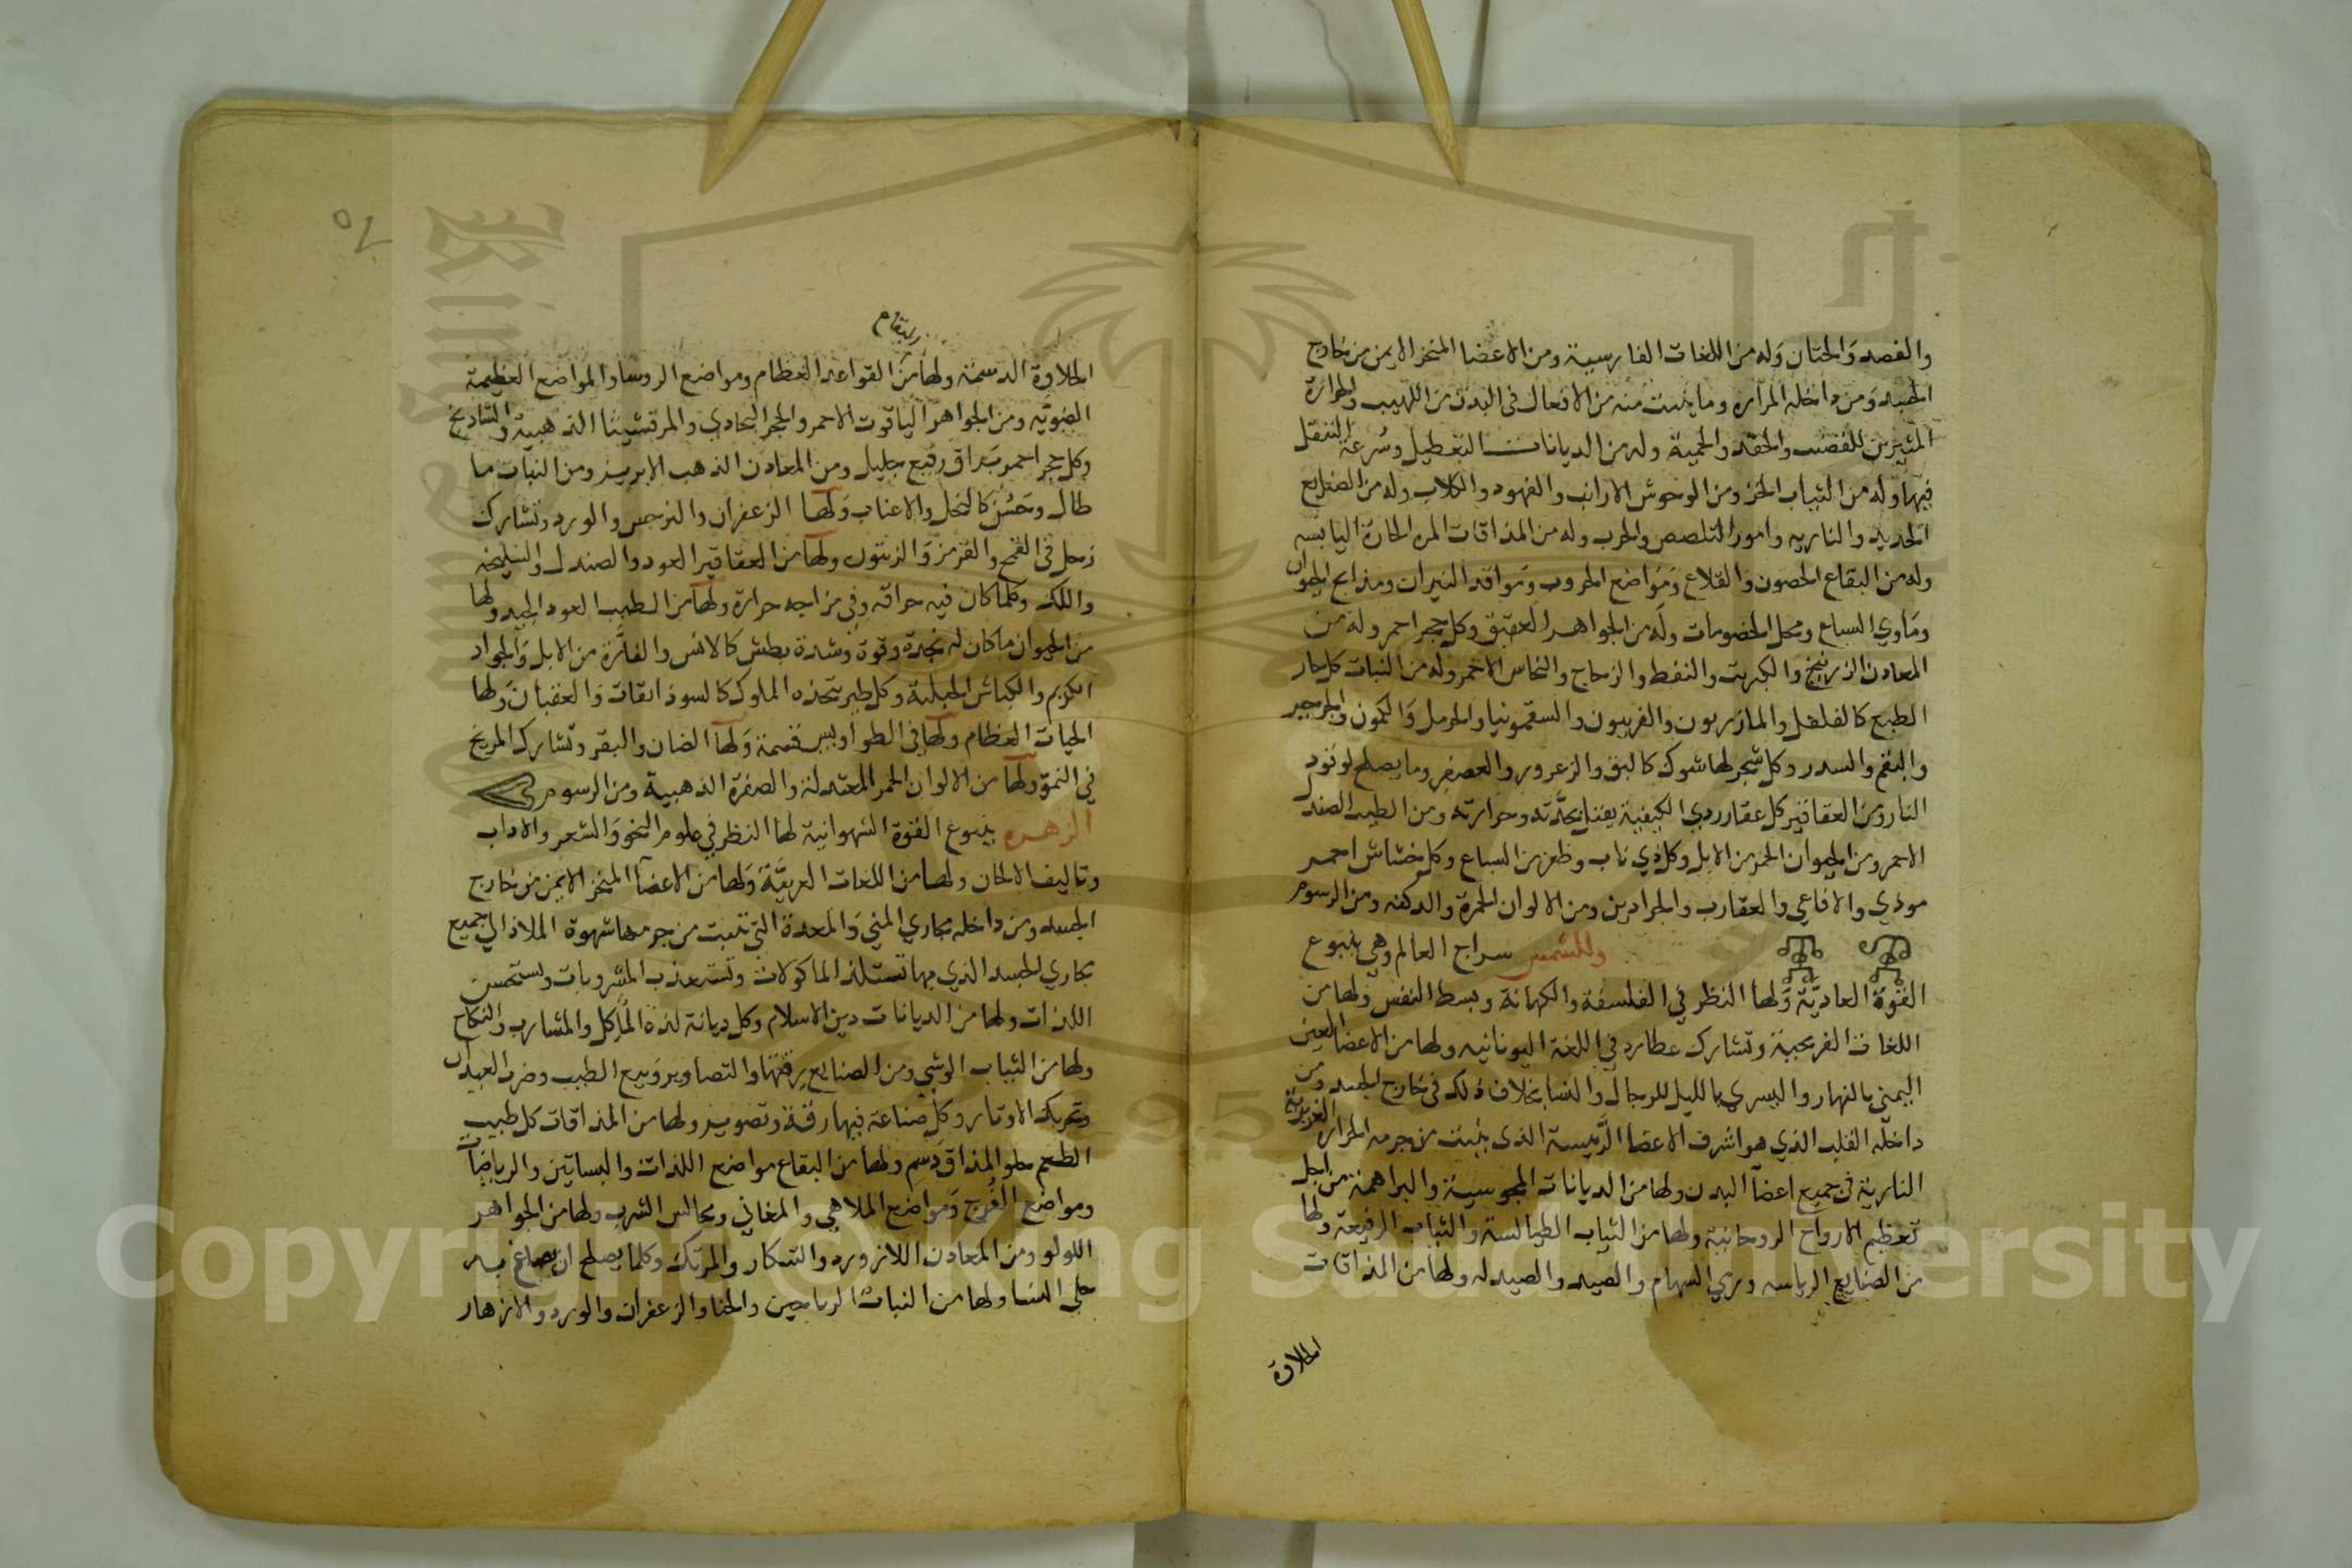 والفصد والختان وله من اللغات الفارسية ومن الاعضا المنخر الايمن من خارج
الجسد ومن داخله المرارة وما ينبت منه من الافعال في البدن من اللهيب والحرارة
المثيرين للغضب والحقد والحمية وله من الديانات التعطيل وسرعة التنقل
فيها وله من الثياب الخز ومن الوحوش الارانب والفهود والكلاب وله من الصنايع
الحديد والناريه وامور التلصص والحرب وله من المذاقات المره الحارة اليابسه
وله من البقاع الحصون والقلاع ومواضع الحروب ومواقد النيران ومذابح الحيوان
وماوي السباع ومحل الخصومات وله من الجواهر العقيق وكل حجر احمر وله من
المعادن الزرنيخ والكبريت والنفط والزجاج والنحاس الاحمر وله من النبات كل حار
الطبع كالفلفل والمازريون والفربيون والسقمونيا والحرمل والكمون والجرجير
والبقم والسدر وكل شجر لها شوك كالبق والزعرور والعصفر وما يصلح لوقود
النار ومن العقاقير كل عقار ردي الكيفية يقتل بحدته وحرارته ومن الطيب الصندل
الاحمر ومن الحيوان الحمر من الابل وكل ذي ناب وظفر من السباع وكل خشاش احمر
موذي والافاعي والعقارب والجرادين ومن الالوان الحمرة والدكنه ومن الرسوم
وللشمس سراج العالم وهي ينبوع
القوة العادية ولها النظر في الفلسفة والكهانة وبسط النفس ولها من
اللغات الفرنجية وتشارك عطارد في اللغة اليونانيه ولها من الاعضا العين
اليمني بالنهار واليسري بالليل للرجال والنسا بخلاف ذلك في خارج الجسد ومن
داخله القلب الذي هو اشرف الاعضا الرييسة الذي ينبث من جرمه الحرارة الغريزية
النارية في جميع اعضا البدن ولها من الديانات المجوسية والبراهمة من اجل
تعظيم الارواح الروحانية ولها من الثياب الطيالسة والثياب الرفيعة ولها
من الصنايع الرياسه ورمي السهام والصيد والصيدله ولها من المذاقات
الحلاوة
٥٢
البقاع
الحلاوة الدسمة ولها من القواعد العظام ومواضع الروسا والمواضع العظيمة
الضوية ومن الجواهر الياقوت الاحمر والحجر البجادي والمرقشيثا الذهبية والشاذنج
وكل حجر احمر براق رفيع جليل ومن المعادن الذهب الابريز ومن النبات ما
طال وحسن كالنخل والاعناب ولها الزعفران والنرجس والورد وتشارك
زحل في القمح والقرمز والزيتون ولها من العقاقير العود والصندل والسليخه
واللك وكلما كان فيه حراقه وفي مزاجه حرارة ولها من الطيب العود الجيد ولها
من الحيوان ما كان له نجدة وقوة وشدة بطش كالانس والفارة من الابل والجواد
الكريم والكباش الجبلية وكل طير يتخذه الملوك كالسوذانقات والعقبان ولها
الحيات العظام ولها في الطواويس قسمة ولها الضان والبقر وتشارك المريخ
في النمور ولها من الالوان الحمر المعتدلة والصفرة الذهبية ومن الرسوم
الزهره ينبوع القوة الشهوانية لها النظر في علوم النحو والشعر والاداب
وتاليف الالحان ولها من اللغات العربية ولها من الاعضا المنخر الايمن من خارج
الجسد ومن داخله مجاري المني والمعدة التي تنبت من جرمها شهوة الملاذ الي جميع
مجاري الجسد الذي بها تستلذ الماكولات وتستعذب المشروبات وتستحسن
اللذات ولها من الديانات دين الاسلام وكل ديانة لذة الماكل والمشارب والنكاح
ولها من الثياب الوشي ومن الصنايع رفقتها والتصاوير وبيع الطيب وضرب العيدان
وتحريك الاوتار وكل صناعة فيها رقة وتصوير ولها من المذاقات كل طيب
الطعم حلو المذاق دسم ولها من البقاع مواضع اللذات والبساتين والرياضات
ومواضع الفرج ومواضع الملاهي والمغاني ومجالس الشرب ولها من الجواهر
اللولو ومن المعادن اللازورد والتنكار والمرتك وكلما يصلح ان يصاغ به
حلي النسا ولها من النبات الرياحين والحنا والزعفران والورد والازهار
Copyright © King Saud University